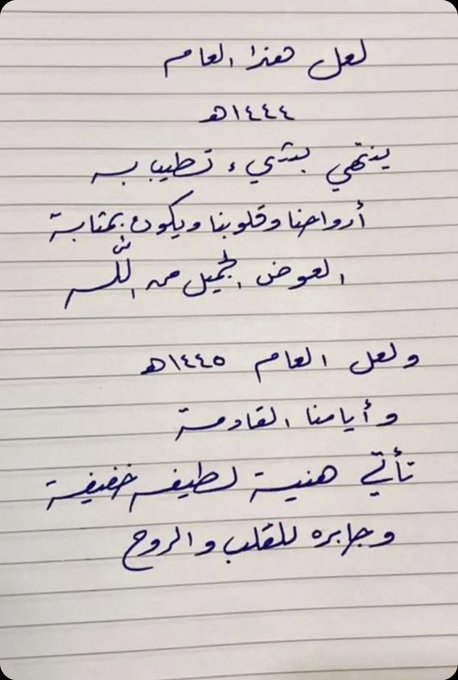 لعل هذا العام
١٤٤٤هـ
ينتهي بشيء تطيب به
أرواحنا وقلوبنا ويكون بمثابة
العوض الجميل من الله
ولعل العام ١٤٤٥هـ
وأيامنا القادمة
تأتي هنية لطيفه خفيفة
وجابره للقلب والروح